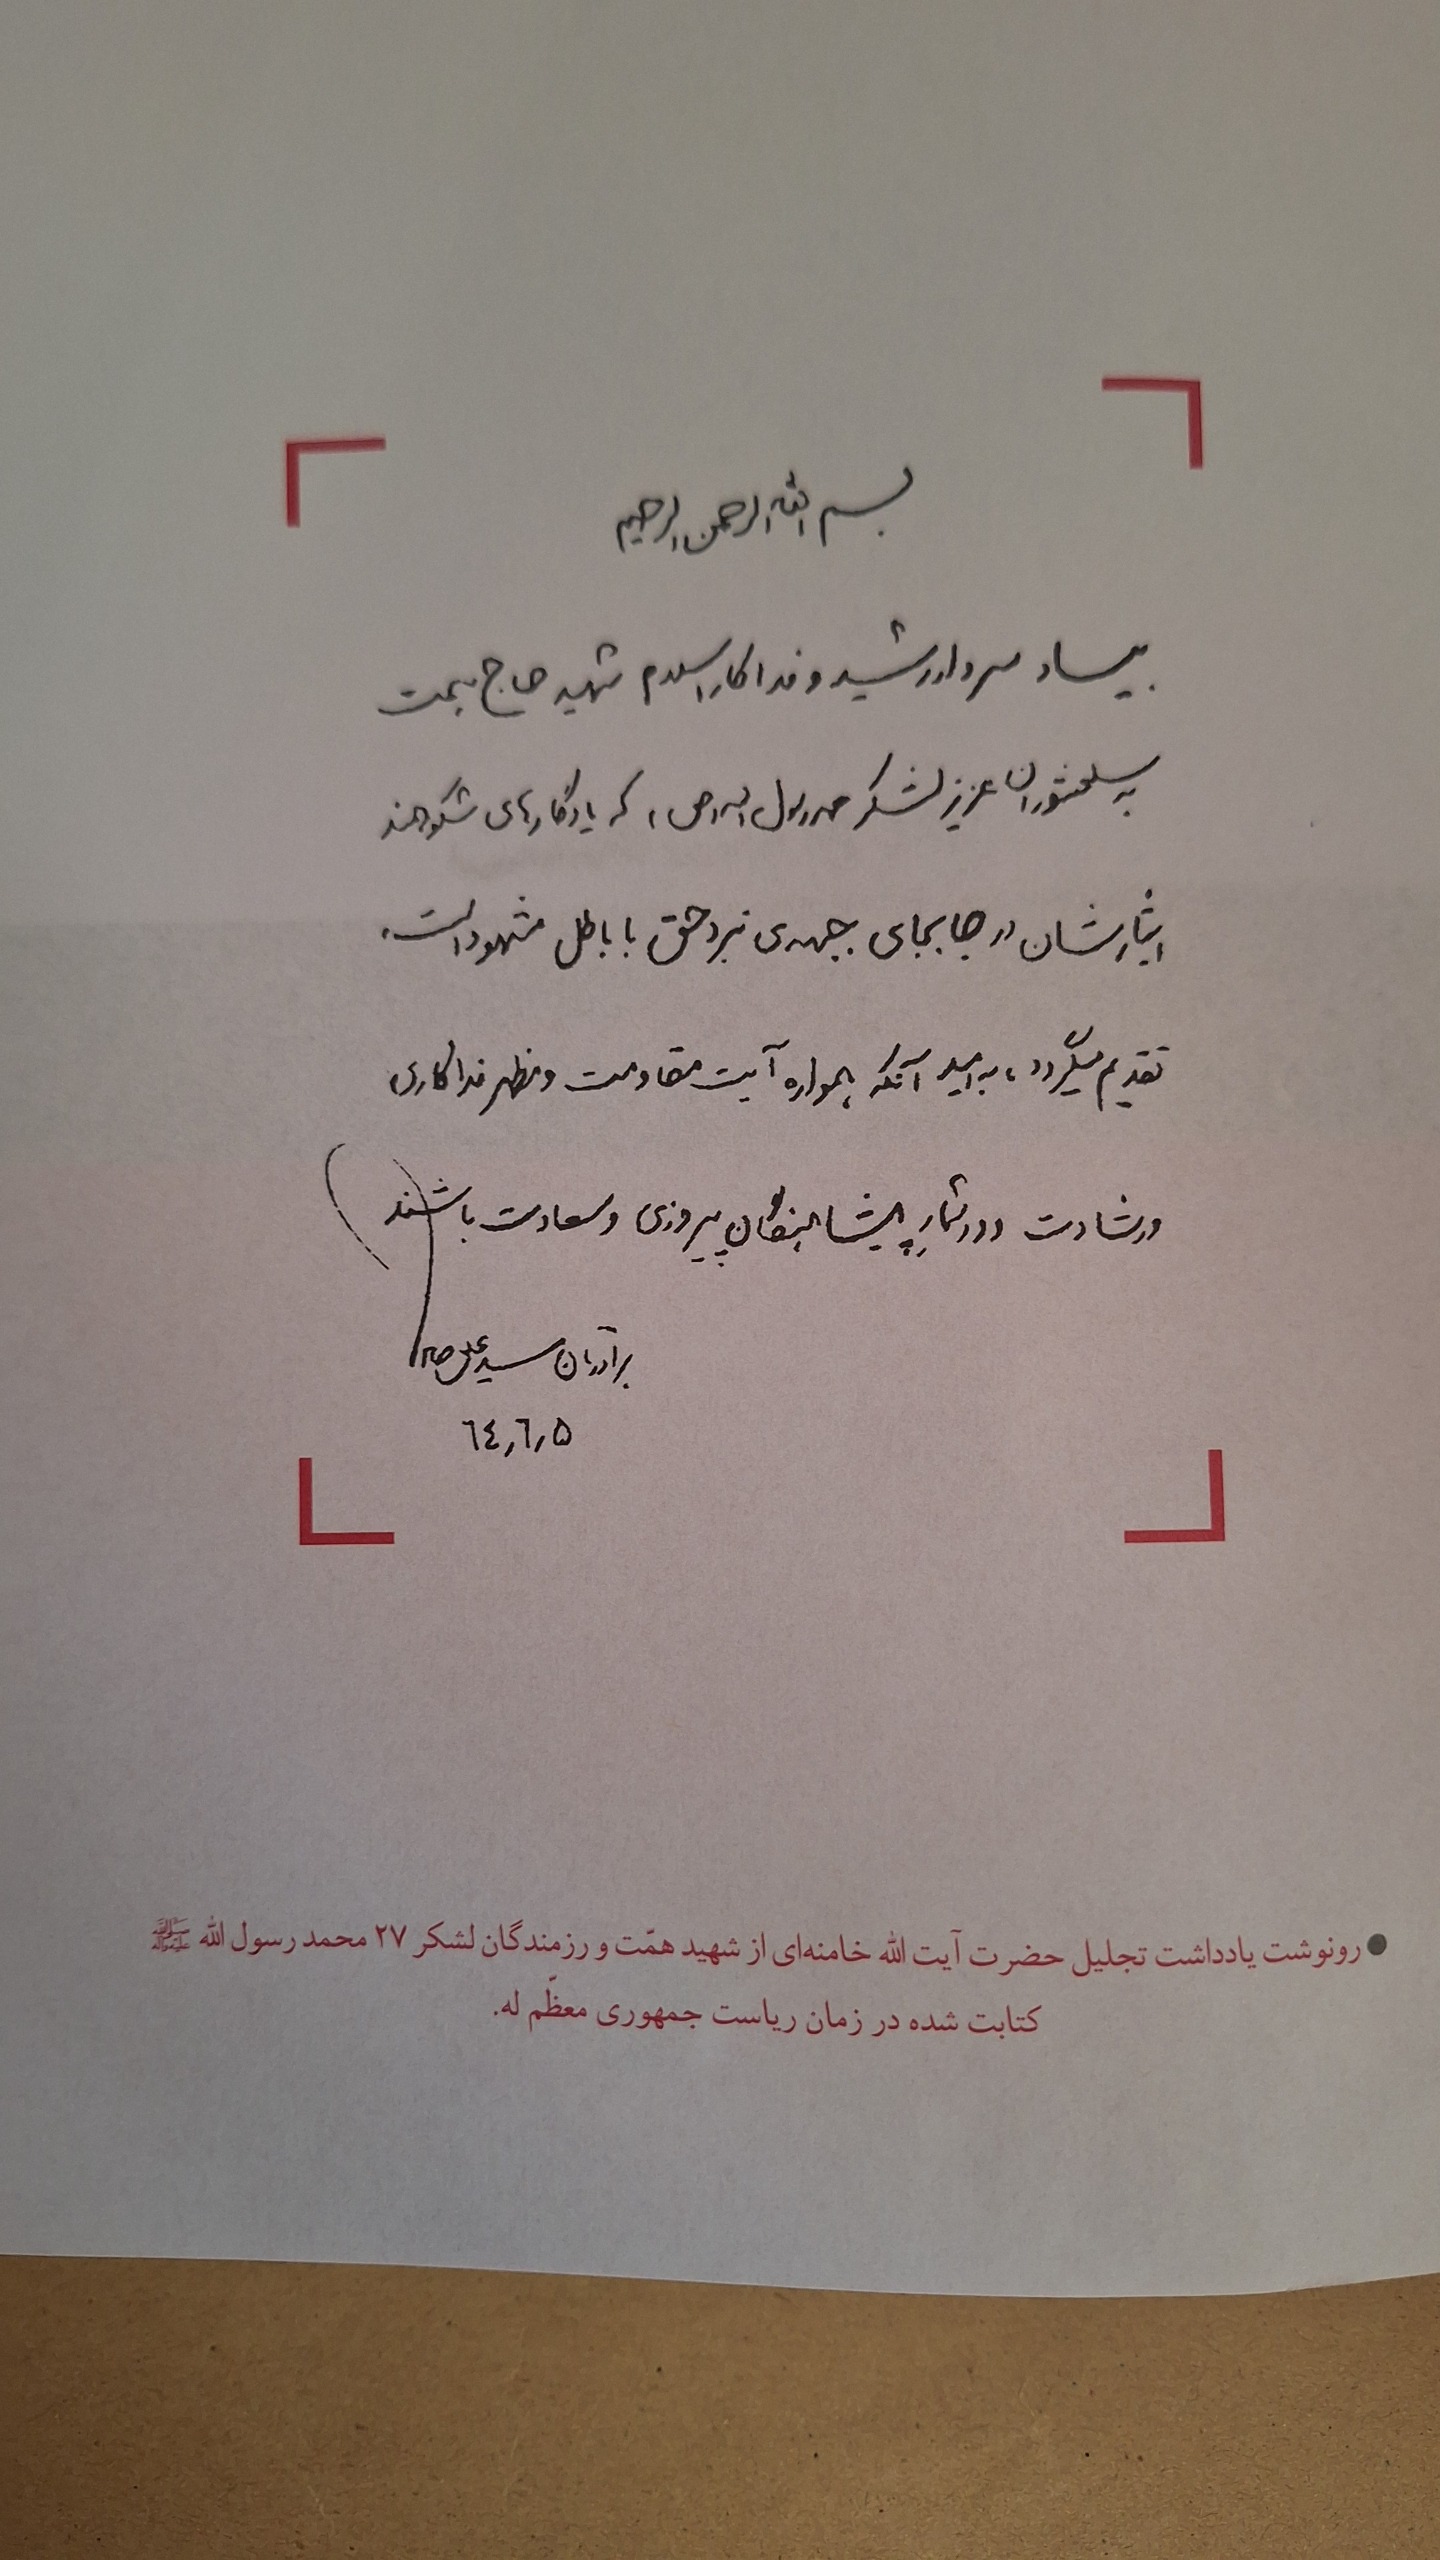 بسم الله الرحمن الرحیم
بیاد سردار رشید و فداکار اسلام شهید حاج همت
به سلحشوران عزیز لشکر محمد رسول الله (ص)، که یادگارهای شکوهمند
ایثارشان در جابجای جبهه‌ی نبرد حق با باطل مشهود است،
تقدیم میگردد، به امید آنکه همواره آیت مقاومت و مظهر فداکاری
و رشادت و در شمارِ پیشاهنگان پیروزی و سعادت باشند
برادرتان سید علی خامنه‌ای
٦٤٫٦٫۵
● رونوشت یادداشت تجلیل حضرت آیت الله خامنه‌ای از شهید همّت و رزمندگان لشکر ۲۷ محمد رسول الله ﷺ
کتابت شده در زمان ریاست جمهوری معظّم له.